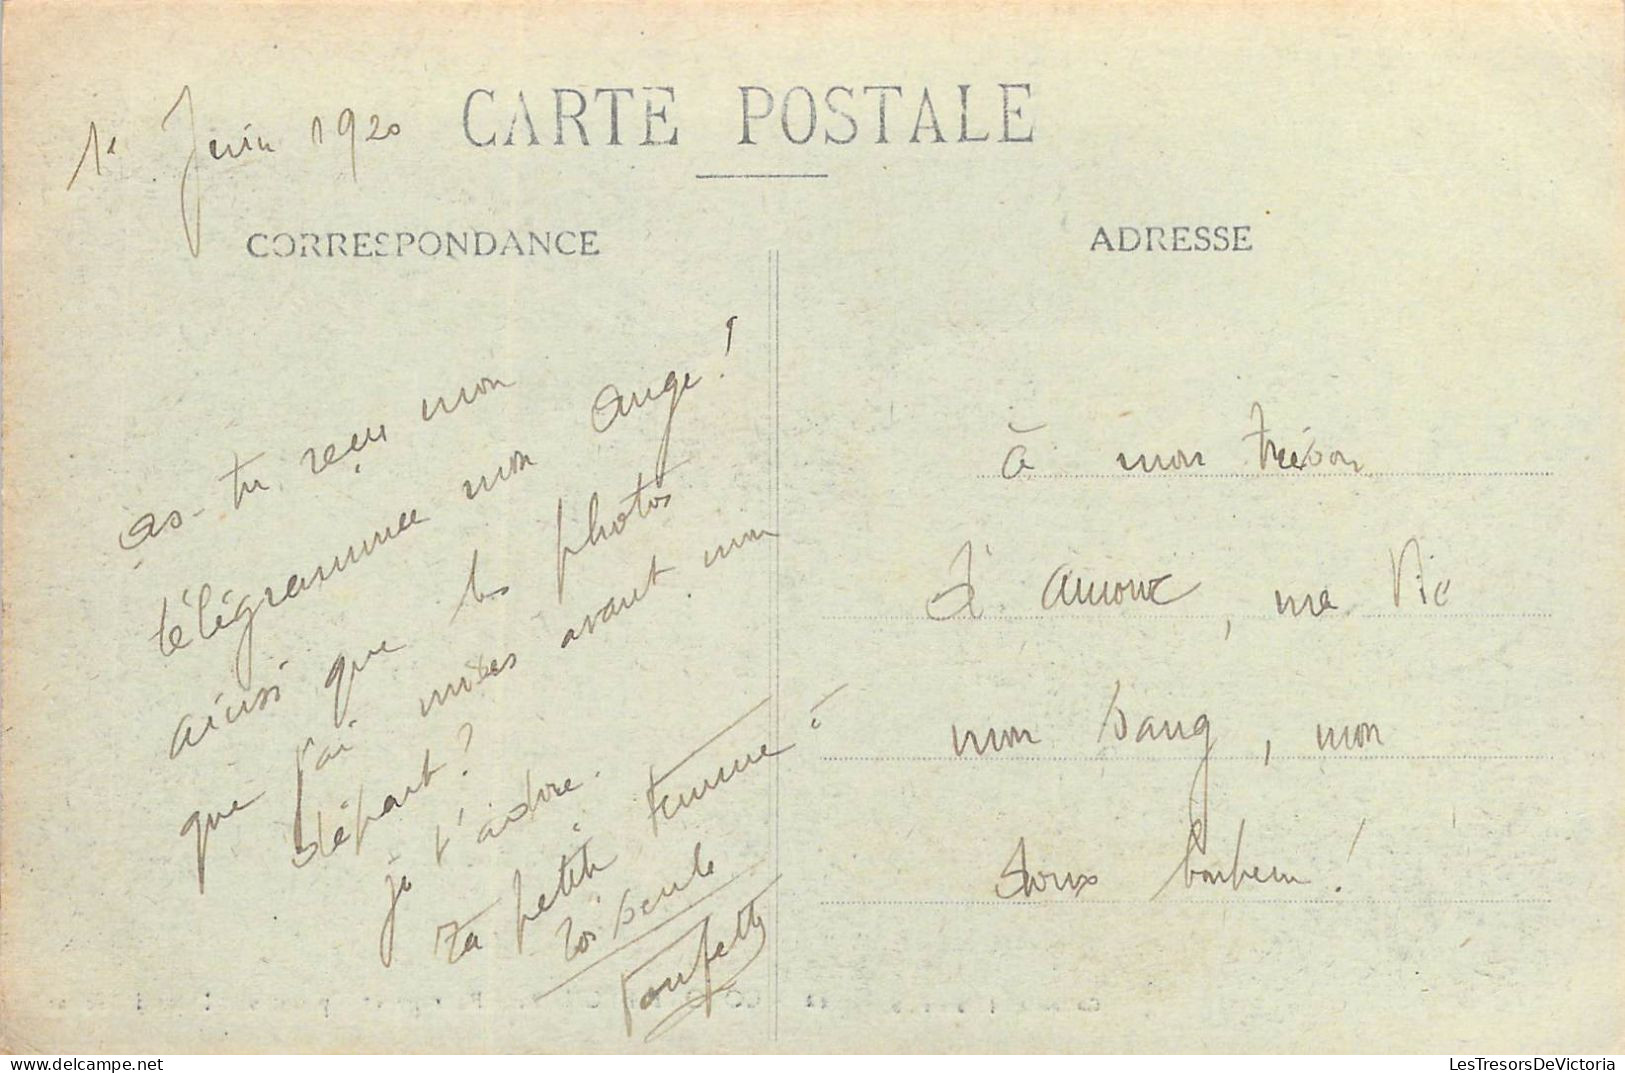 1e Juin 1920
CARTE POSTALE
CORRESPONDANCE
ADRESSE
as-tu reçu mon
télégramme mon ange!
ainsi que les photos
que j'ai mises avant mon
départ?
je t'adore.
Ta petite femme à
toi seule
à mon trésor
d'amour, ma Vie
mon sang, mon
doux bonheur!
LesTresorsDeVictoria